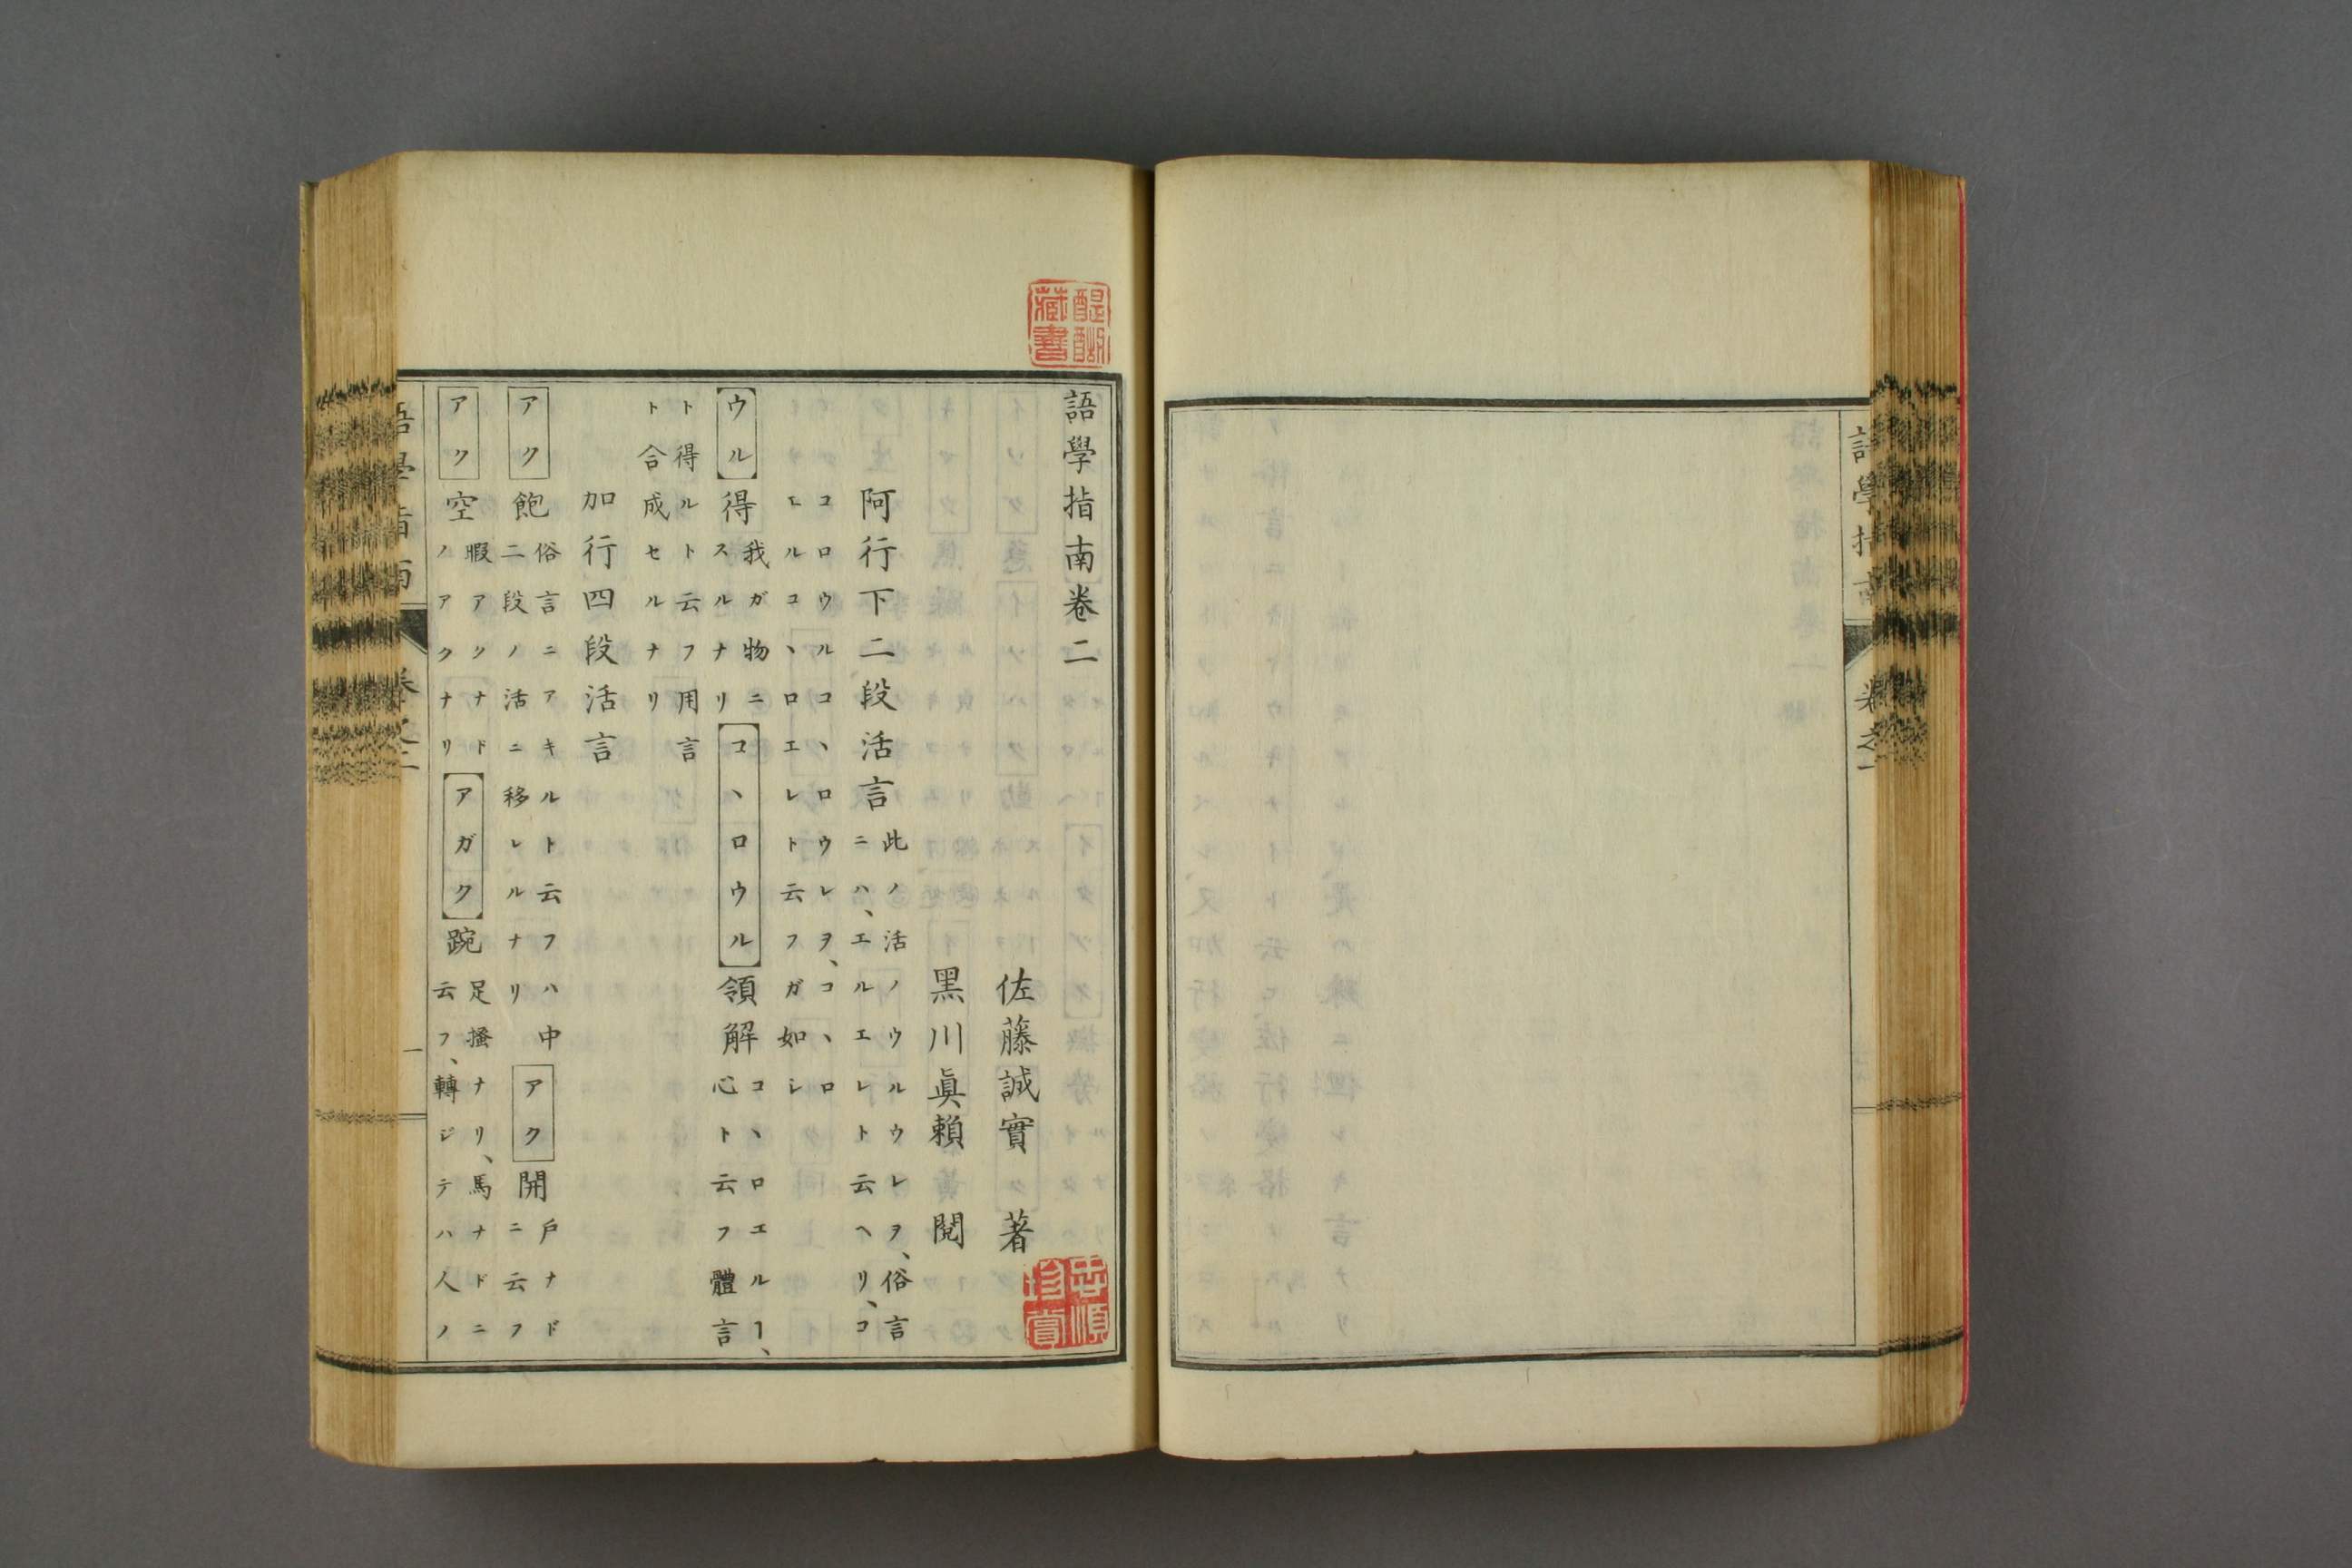 語學指南 卷之一
醍醐
藏書
語學指南卷二
佐藤誠實 著
忠順
珍賞
黑川眞賴 閲
阿行下二段活言 此ノ活ノウルウレヲ、俗言
ニハ、エルエレト云ヘリ、コ
コロウルコヽロウレヲ、コヽロ
エルコヽロエレト云フガ如シ
ウル 得 我ガ物ニ
スルナリ
コヽロウル 領解 コヽロエルヿ、
心ト云フ體言
ト得ルト云フ用言
ト合成セルナリ
加行四段活言
アク 飽 俗言ニアキルト云フハ中
二段ノ活ニ移レルナリ
アク 開 戸ナド
ニ云フ
アク 空 暇アクナド
ノアクナリ
アガク 踠 足搔ナリ、馬ナドニ
云フ、轉ジテハ人ノ
語學指南 卷之二 一